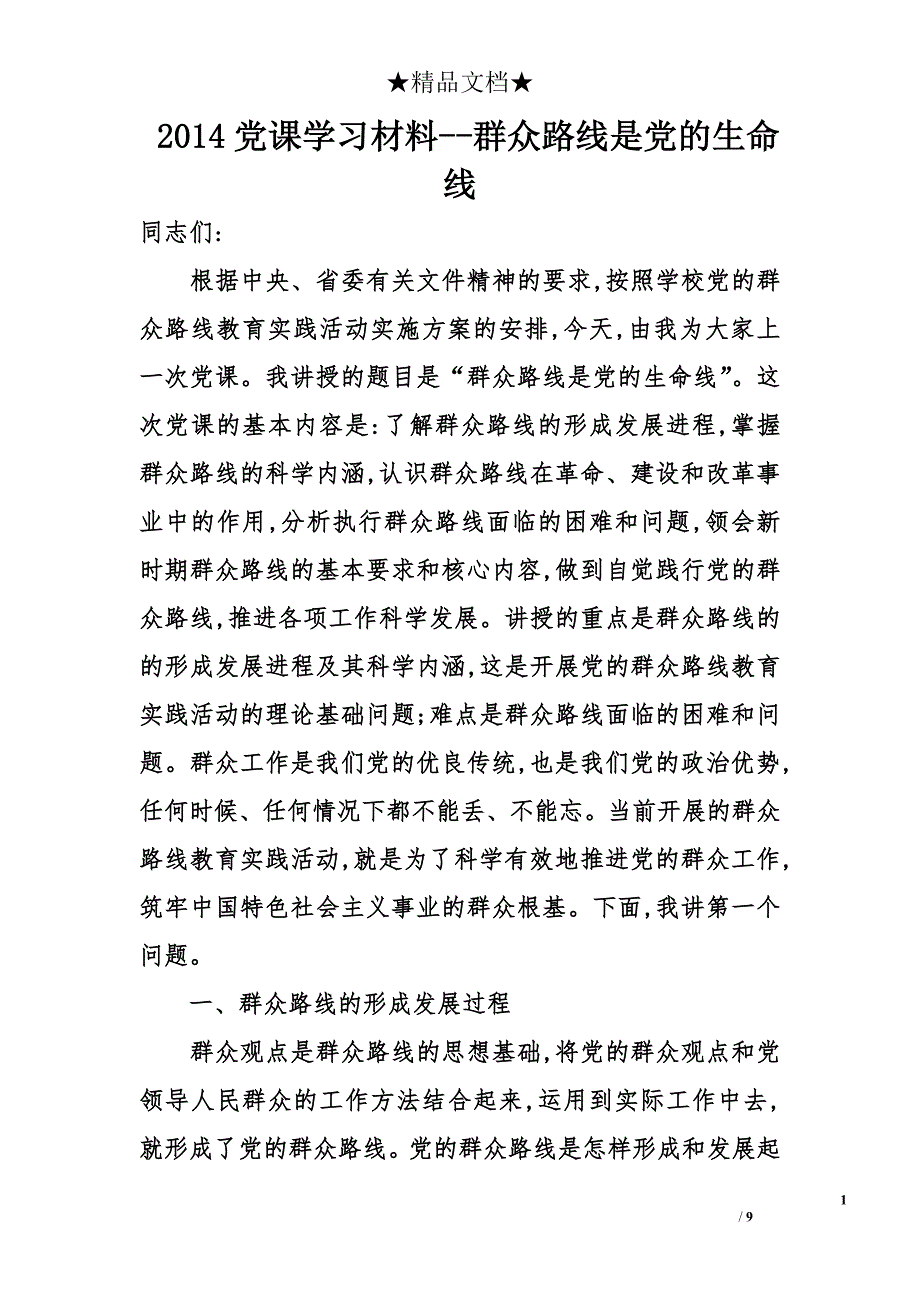 ★精品文档★
2014党课学习材料--群众路线是党的生命
线
同志们:
根据中央、省委有关文件精神的要求,按照学校党的群
众路线教育实践活动实施方案的安排,今天,由我为大家上
一次党课。我讲授的题目是“群众路线是党的生命线”。这
次党课的基本内容是:了解群众路线的形成发展进程,掌握
群众路线的科学内涵,认识群众路线在革命、建设和改革事
业中的作用,分析执行群众路线面临的困难和问题,领会新
时期群众路线的基本要求和核心内容,做到自觉践行党的群
众路线,推进各项工作科学发展。讲授的重点是群众路线的
的形成发展进程及其科学内涵,这是开展党的群众路线教育
实践活动的理论基础问题;难点是群众路线面临的困难和问
题。群众工作是我们党的优良传统,也是我们党的政治优势,
任何时候、任何情况下都不能丢、不能忘。当前开展的群众
路线教育实践活动,就是为了科学有效地推进党的群众工作,
筑牢中国特色社会主义事业的群众根基。下面,我讲第一个
问题。
一、群众路线的形成发展过程
群众观点是群众路线的思想基础,将党的群众观点和党
领导人民群众的工作方法结合起来,运用到实际工作中去,
就形成了党的群众路线。党的群众路线是怎样形成和发展起
1
/ 9